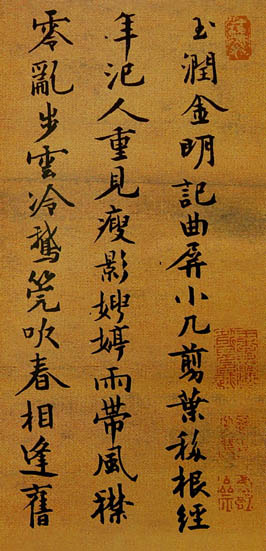 玉潤金明記曲屏小几剪葉移根經
年汜人重見瘦影娉婷雨帶風襟
零亂步雲冷鵝筦吹春相逢舊